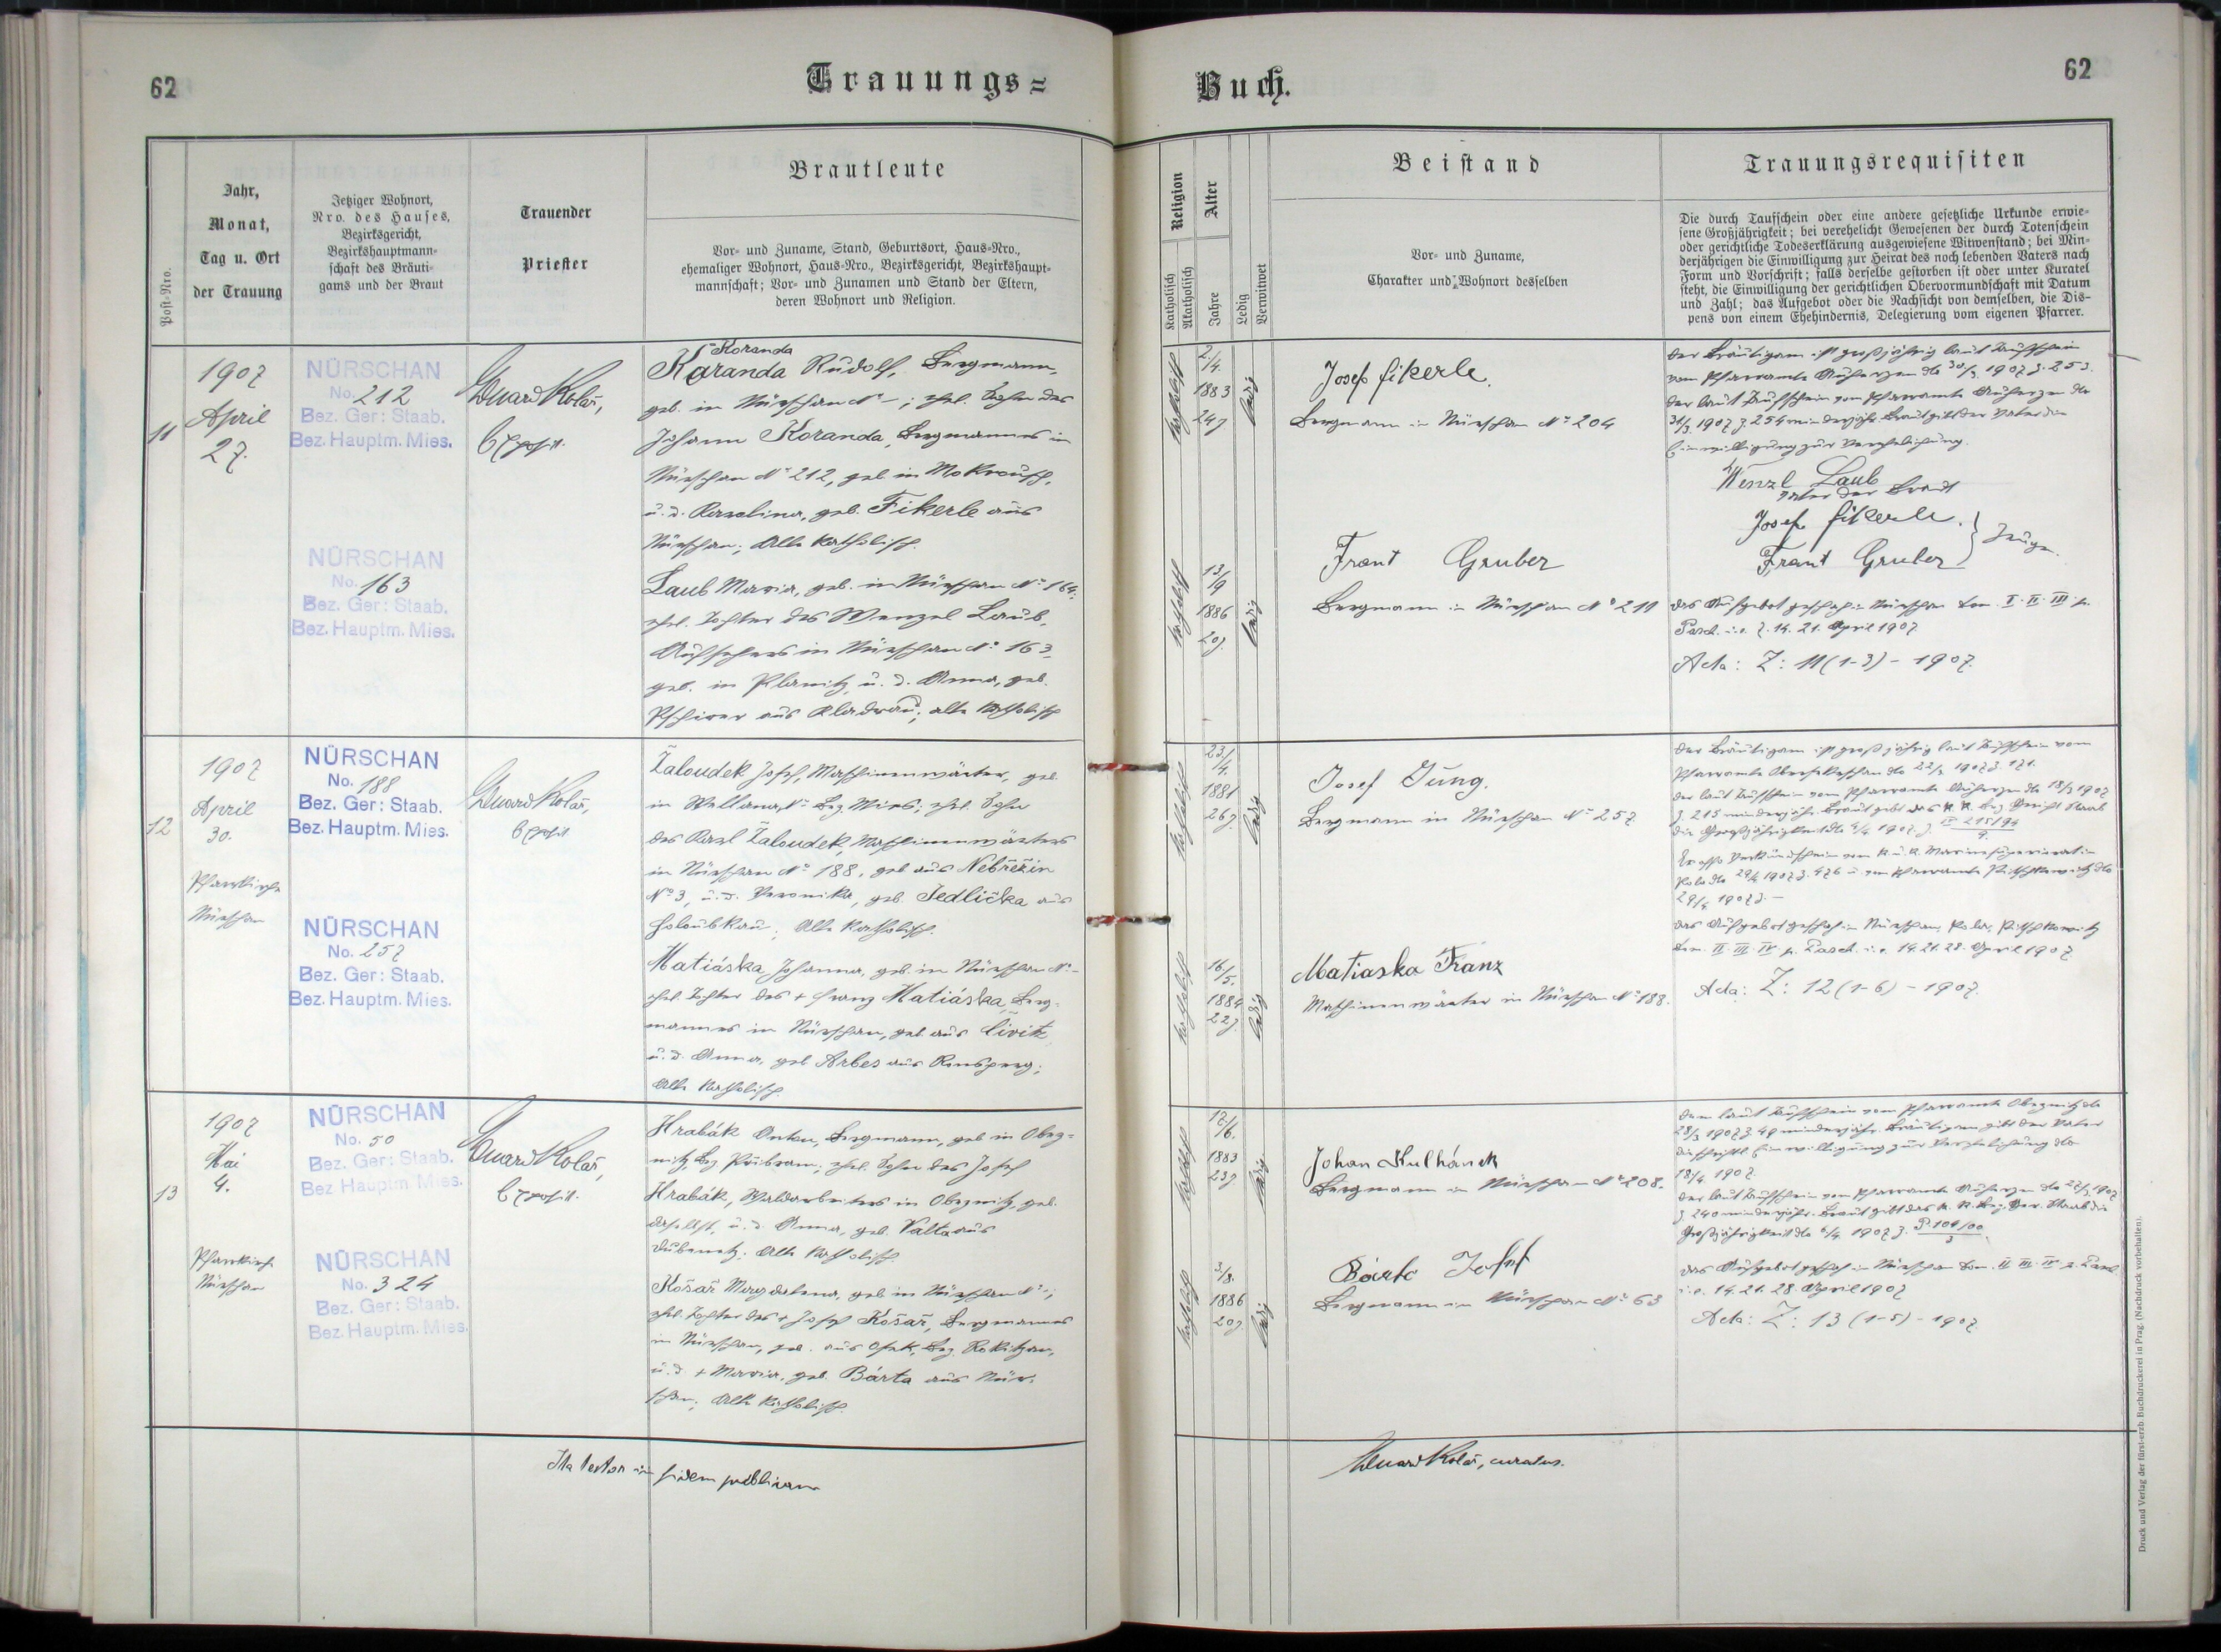 62
Trauungs=
Buch.
62
Post-Nro.
Jahr,
Monat,
Tag u. Ort
der Trauung
Jetziger Wohnort,
Nro. des Hauses,
Bezirksgericht,
Bezirkshauptmann-
schaft des Bräuti-
gams und der Braut
Trauender
Priester
Brautleute
Vor- und Zuname, Stand, Geburtsort, Haus-Nro.,
ehemaliger Wohnort, Haus-Nro., Bezirksgericht, Bezirkshaupt-
mannschaft; Vor- und Zunamen und Stand der Eltern,
deren Wohnort und Religion.
Religion
Katholisch
Akatholisch
Alter
Jahre
Ledig
Verwitwet
Beistand
Vor- und Zuname,
Charakter und Wohnort desselben
Trauungsrequisiten
Die durch Taufschein oder eine andere gesetzliche Urkunde erwie-
sene Großjährigkeit; bei verehelicht Gewesenen der durch Totenschein
oder gerichtliche Todeserklärung ausgewiesene Witwenstand; bei Min-
derjährigen die Einwilligung zur Heirat des noch lebenden Vaters nach
Form und Vorschrift; falls derselbe gestorben ist oder unter Kuratel
steht, die Einwilligung der gerichtlichen Obervormundschaft mit Datum
und Zahl; das Aufgebot oder die Nachsicht von demselben, die Dis-
pens von einem Ehehindernis, Delegierung vom eigenen Pfarrer.
11
1907
April
27.
NÜRSCHAN
No. 212
Bez. Ger: Staab.
Bez. Hauptm. Mies.
NÜRSCHAN
No. 163
Bez. Ger: Staab.
Bez. Hauptm. Mies.
Eduard Kolář,
Exposit.
Koranda
Karanda Rudolf, Bergmann,
geb. in Nürschan N° –; ehel. Sohn des
Johann Koranda, Bergmannes in
Nürschan N° 212, geb. in Mokrousch,
u. d. Karolina, geb. Fikerle aus
Nürschan; Alle katholisch.
Laub Maria, geb. in Nürschan N° 164;
ehel. Tochter des Wenzel Laub,
Aufsehers in Nürschan N° 163,
geb. in Planitz, u. d. Anna, geb.
Pschirer aus Kladrau; alle katholisch
katholisch
2./4.
1883
24 J.
ledig
katholisch
13/9
1886
20 J.
ledig
Josef Fikerle.
Bergmann in Nürschan N° 204
Frant Gruber
Bergmann in Nürschan N° 211
Der Bräutigam ist großjährig laut Taufschein
vom Pfarramte Auherzen dto 30/3 1907 Z. 253.
Der laut Taufschein vom Pfarramte Auherzen dto
31/3 1907 Z. 254 minderjähr. Braut gibt der Vater die
Einwilligung zur Verehelichung.
Wenzl Laub
Vater der Braut
Josef Fikerle. } Zeugen.
Frant Gruber
Das Aufgebot geschah in Nürschan Dom. I. II. III. p.
Pasch. i. e. 7. 14. 21. April 1907
Acta: Z: 11 (1-3) - 1907.
12
1907
April
30.
Pfarrkirche
Nürschan
NÜRSCHAN
No. 188
Bez. Ger: Staab.
Bez. Hauptm. Mies.
NÜRSCHAN
No. 257
Bez. Ger: Staab.
Bez. Hauptm. Mies.
Eduard Kolář,
Exposit
Žaloudek Josef, Maschinenwärter, geb.
in Wellana, N° – Bez. Mies; ehel. Sohn
des Karl Žaloudek, Maschinenwärters
in Nürschan N° 188, geb aus Nebřežin
N° 3, u. d. Veronika, geb. Jedlička aus
Holoubkau; Alle katholisch.
Matiáska Johanna, geb. in Nürschan N° –
ehel. Tochter des + Franz Matiáska, Berg-
mannes in Nürschan, geb. aus Civitz
u. d. Anna, geb Arbes aus
Alle katholisch.
katholisch
23./4.
1881
26 J.
ledig
katholisch
16/5.
1884
22 J.
ledig
Josef Jung.
Bergmann in Nürschan N° 257
Matiaska Franz
Maschinenwärter in Nürschan N° 188.
Der Bräutigam ist großjährig laut Taufschein vom
Pfarramte dto 22/3 1907 Z. 171.
Der laut Taufschein vom Pfarramte Auherzen dto 18/3 1907
Z. 215 minderjähr. Braut gibt das k. k. Bez. Gericht Staab
die Großjährigkeit dto 4/4 1907. Z.
Pola dto 29/4 1907 Z. 476 u. vom Pfarramte
29/4 1907 Z. –
Das Aufgebot geschah in Nürschan, Pola,
Dom. II. III. IV. p. Pasch. i. e. 14. 21. 28. April 1907
Acta: Z: 12 (1-6) - 1907.
13
1907
Mai
4.
Pfarrkirche
Nürschan
NÜRSCHAN
No. 50
Bez. Ger: Staab.
Bez Hauptm. Mies.
NÜRSCHAN
No. 324
Bez. Ger: Staab.
Bez. Hauptm. Mies.
Eduard Kolář,
Exposit.
Hrabák Anton, Bergmann, geb in Obez-
nitz Bez Přibram; ehel. Sohn des Josef
Hrabák, Waldarbeiters in Obeznitz, geb.
daselbst, u. d. Anna, geb. Valta aus
Dubenetz. Alle katholisch.
Košař Magdalena, geb in Nürschan N° –,
ehel. Tochter des + Josef Košař, Bergmannes
in Nürschan, geb. aus Osek, Bez. Rokitzan,
u. d. + Maria, geb. Bárta aus Nür-
schan; Alle katholisch.
katholisch
12/6.
1883
23 J.
ledig
katholisch
3/8.
1886
20 J.
ledig
Johan Kulhánek
Bergmann in Nürschan N° 208.
Bárta Josef
Bergmann in Nürschan N° 63
Dem laut Taufschein vom Pfarramte Obeznitz dto
28/3 1907 Z. 49 minderjähr. Bräutigam gibt der Vater
die schriftl. Einwilligung zur Verehelichung dto
18/4 1907
Der laut Taufschein vom Pfarramte Auherzen dto 22/3 1907
Z. 240 minderjähr. Braut gibt das k. k. Bez. Ger. Staab die
Großjährigkeit dto 6/4 1907 Z. P. 104/00
Das Aufgebot geschah in Nürschan Dom. II. III. IV. p. Pasch
i. e. 14. 21. 28. April 1907
Acta: Z: 13 (1-5) - 1907.
Ita testor in fidem publicam
Eduard Kolář, curatus.
Druck und Verlag der fürst-erzb. Buchdruckerei in Prag. (Nachdruck vorbehalten).